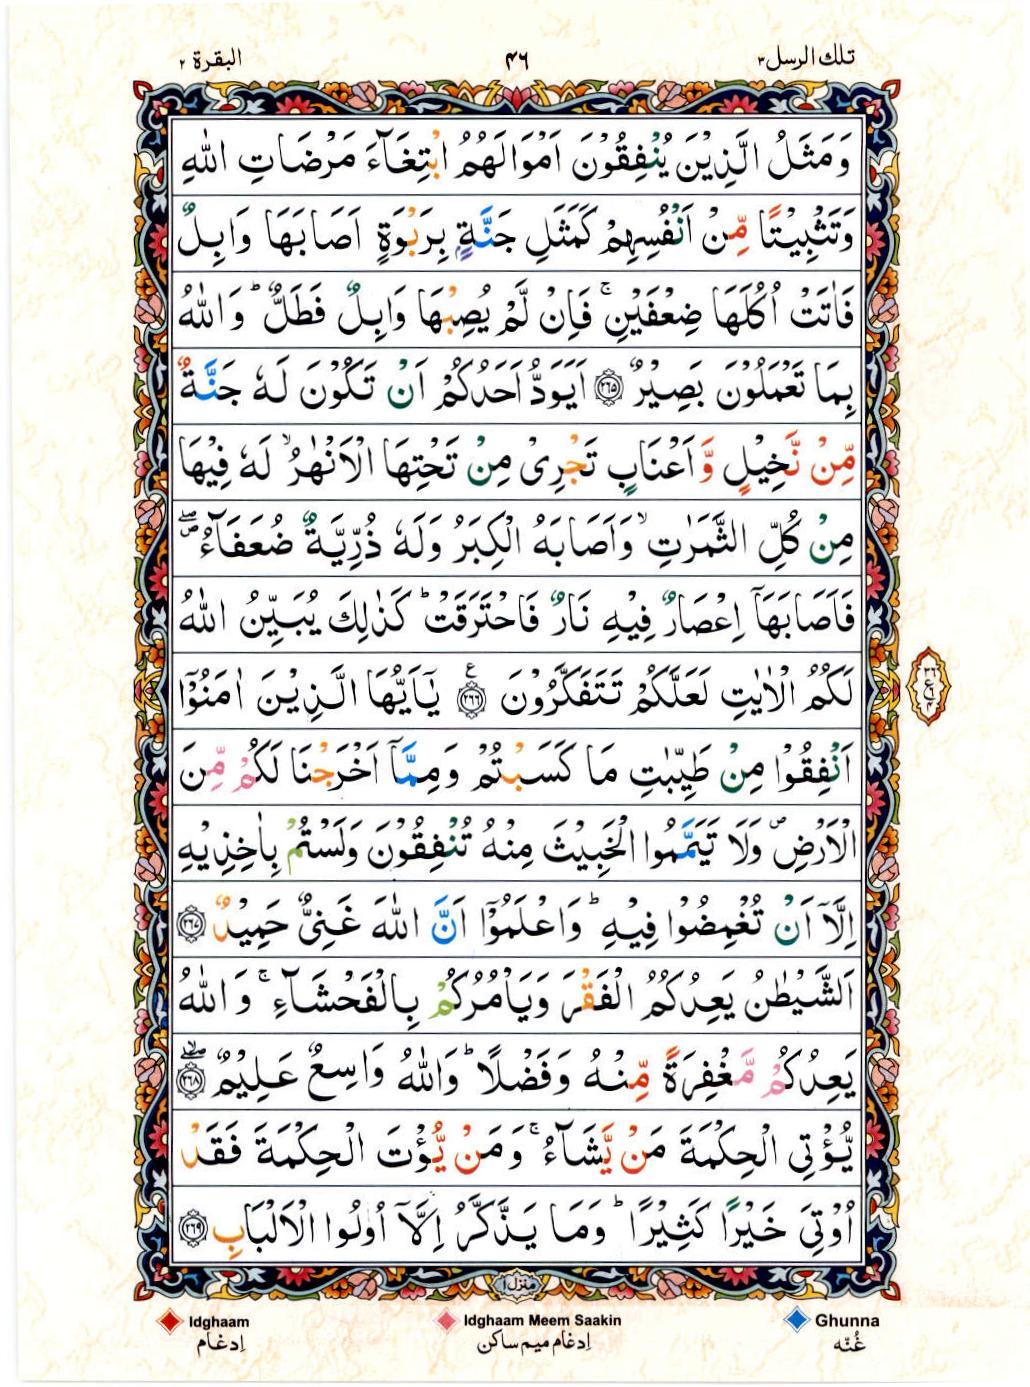 تلك الرسل ٣ ٤٦ البقرة ٢
وَمَثَلُ الَّذِيْنَ يُنْفِقُوْنَ اَمْوَالَهُمُ ابْتِغَآءَ مَرْضَاتِ اللّٰهِ
وَتَثْبِيْتًا مِّنْ اَنْفُسِهِمْ كَمَثَلِ جَنَّةٍۭ بِرَبْوَةٍ اَصَابَهَا وَابِلٌ
فَاٰتَتْ اُكُلَهَا ضِعْفَيْنِ ۚ فَاِنْ لَّمْ يُصِبْهَا وَابِلٌ فَطَلٌّ ؕ وَاللّٰهُ
بِمَا تَعْمَلُوْنَ بَصِيْرٌ ﴿۲۶۵﴾ اَيَوَدُّ اَحَدُكُمْ اَنْ تَكُوْنَ لَهٗ جَنَّةٌ
مِّنْ نَّخِيْلٍ وَّاَعْنَابٍ تَجْرِىْ مِنْ تَحْتِهَا الْاَنْهٰرُ ۙ لَهٗ فِيْهَا
مِنْ كُلِّ الثَّمَرٰتِ ۙ وَاَصَابَهُ الْكِبَرُ وَلَهٗ ذُرِّيَّةٌ ضُعَفَآءُ ۖ ص
فَاَصَابَهَاۤ اِعْصَارٌ فِيْهِ نَارٌ فَاحْتَرَقَتْ ؕ كَذٰلِكَ يُبَيِّنُ اللّٰهُ
لَكُمُ الْاٰيٰتِ لَعَلَّكُمْ تَتَفَكَّرُوْنَ ﴿۲۶۶﴾ ع يٰۤاَيُّهَا الَّذِيْنَ اٰمَنُوْۤا
اَنْفِقُوْا مِنْ طَيِّبٰتِ مَا كَسَبْتُمْ وَمِمَّاۤ اَخْرَجْنَا لَكُمْ مِّنَ
الْاَرْضِ ۪ وَلَا تَيَمَّمُوا الْخَبِيْثَ مِنْهُ تُنْفِقُوْنَ وَلَسْتُمْ بِاٰخِذِيْهِ
اِلَّاۤ اَنْ تُغْمِضُوْا فِيْهِ ؕ وَاعْلَمُوْۤا اَنَّ اللّٰهَ غَنِىٌّ حَمِيْدٌ ﴿۲۶۷﴾
اَلشَّيْطٰنُ يَعِدُكُمُ الْفَقْرَ وَيَاْمُرُكُمْ بِالْفَحْشَآءِ ۚ وَاللّٰهُ
يَعِدُكُمْ مَّغْفِرَةً مِّنْهُ وَفَضْلًا ؕ وَاللّٰهُ وَاسِعٌ عَلِيْمٌ ﴿۲۶۸﴾ ۖۙ
يُّؤْتِى الْحِكْمَةَ مَنْ يَّشَآءُ ۚ وَمَنْ يُّؤْتَ الْحِكْمَةَ فَقَدْ
اُوْتِىَ خَيْرًا كَثِيْرًا ؕ وَمَا يَذَّكَّرُ اِلَّاۤ اُولُوا الْاَلْبَابِ ﴿۲۶۹﴾
منزل ١
Idghaam Idghaam Meem Saakin Ghunna
اِدغام اِدغام میم ساکن غُنّه